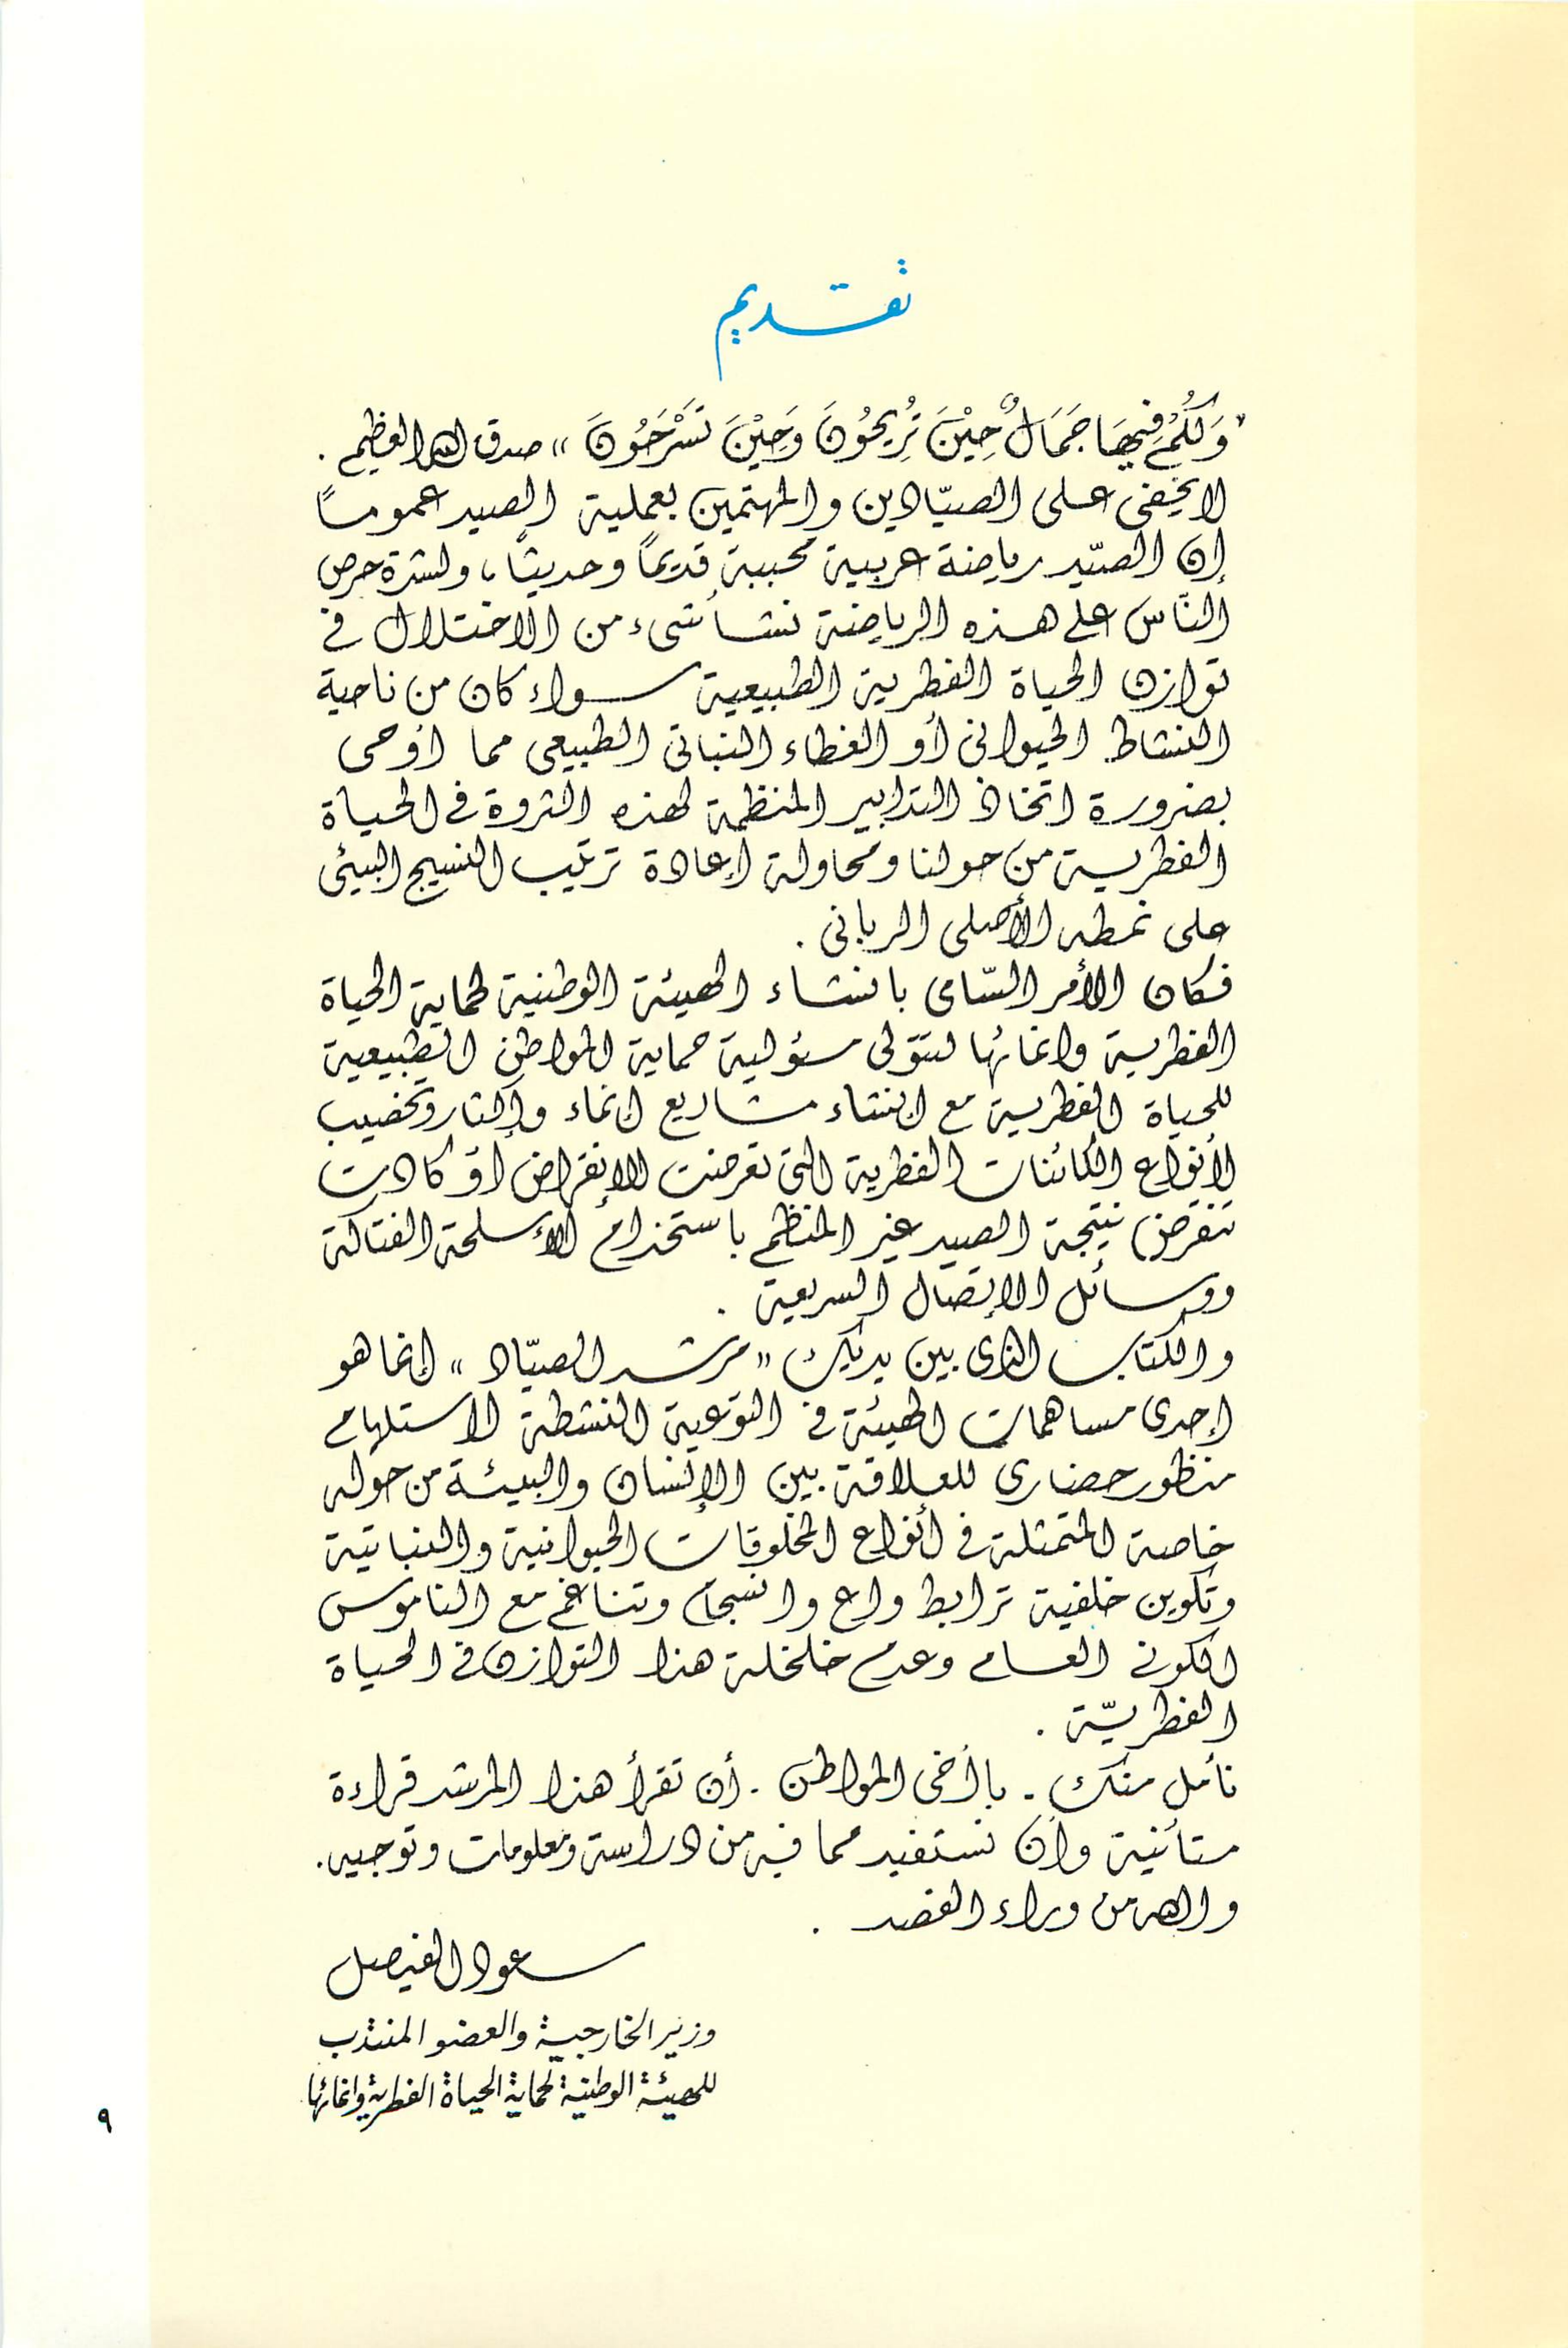 تقديم
"وَلَكُمْ فِيهَا جَمَالٌ حِيْنَ تُرِيحُونَ وَحِيْنَ تَسْرَحُونَ" صدق الله العظيم .
لا يخفى على الصيّادين والمهتمين بعملية الصيد عموماً
إن الصّيد رياضة عربية محببة قديماً وحديثاً، ولشدة حرص
النّاس على هذه الرياضة نشأ شىء من الاختلال في
توازن الحياة الفطرية الطبيعية سواء كان من ناحية
النشاط الحيواني أو الغطاء النباتي الطبيعي مما أوحى
بضرورة اتخاذ التدابير المنظمة لهذه الثروة في الحياة
الفطرية من حولنا ومحاولة إعادة ترتيب النسيج البيئى
على نمطه الأصلى الربانى .
فكان الأمر السّامى بانشاء الهيئة الوطنية لحماية الحياة
الفطرية وانمائها لتتولى مسئولية حماية المواطن الطبيعية
للحياة الفطرية مع إنشاء مشاريع إنماء وإكثار وتخصيب
لأنواع الكائنات الفطرية التي تعرضت للإنقراض أو كادت
تنقرض نتيجة الصيد غير المنظم باستخدام الأسلحة الفتاكة
ووسائل الإتصال السريعة .
والكتاب الذى بين يديك "مرشد الصيّاد" إنما هو
إحدى مساهمات الهيئة في التوعية النشطة لاستلهام
منظور حضارى للعلاقة بين الإنسان والبيئة من حوله
خاصة المتمثلة في أنواع المخلوقات الحيوانية والنباتية
وتكوين خلفية ترابط واع وانسجام وتناغم مع الناموس
الكوني العام وعدم خلخلة هذا التوازن في الحياة
الفطريّة .
نأمل منك - يا أخى المواطن - أن تقرأ هذا المرشد قراءة
متأنية وأن تستفيد مما فيه من دراسة ومعلومات وتوجيه .
والله من وراء القصد .
سعود الفيصل
وزير الخارجية والعضو المنتدب
للهيئة الوطنية لحماية الحياة الفطرية وانمائها
٩